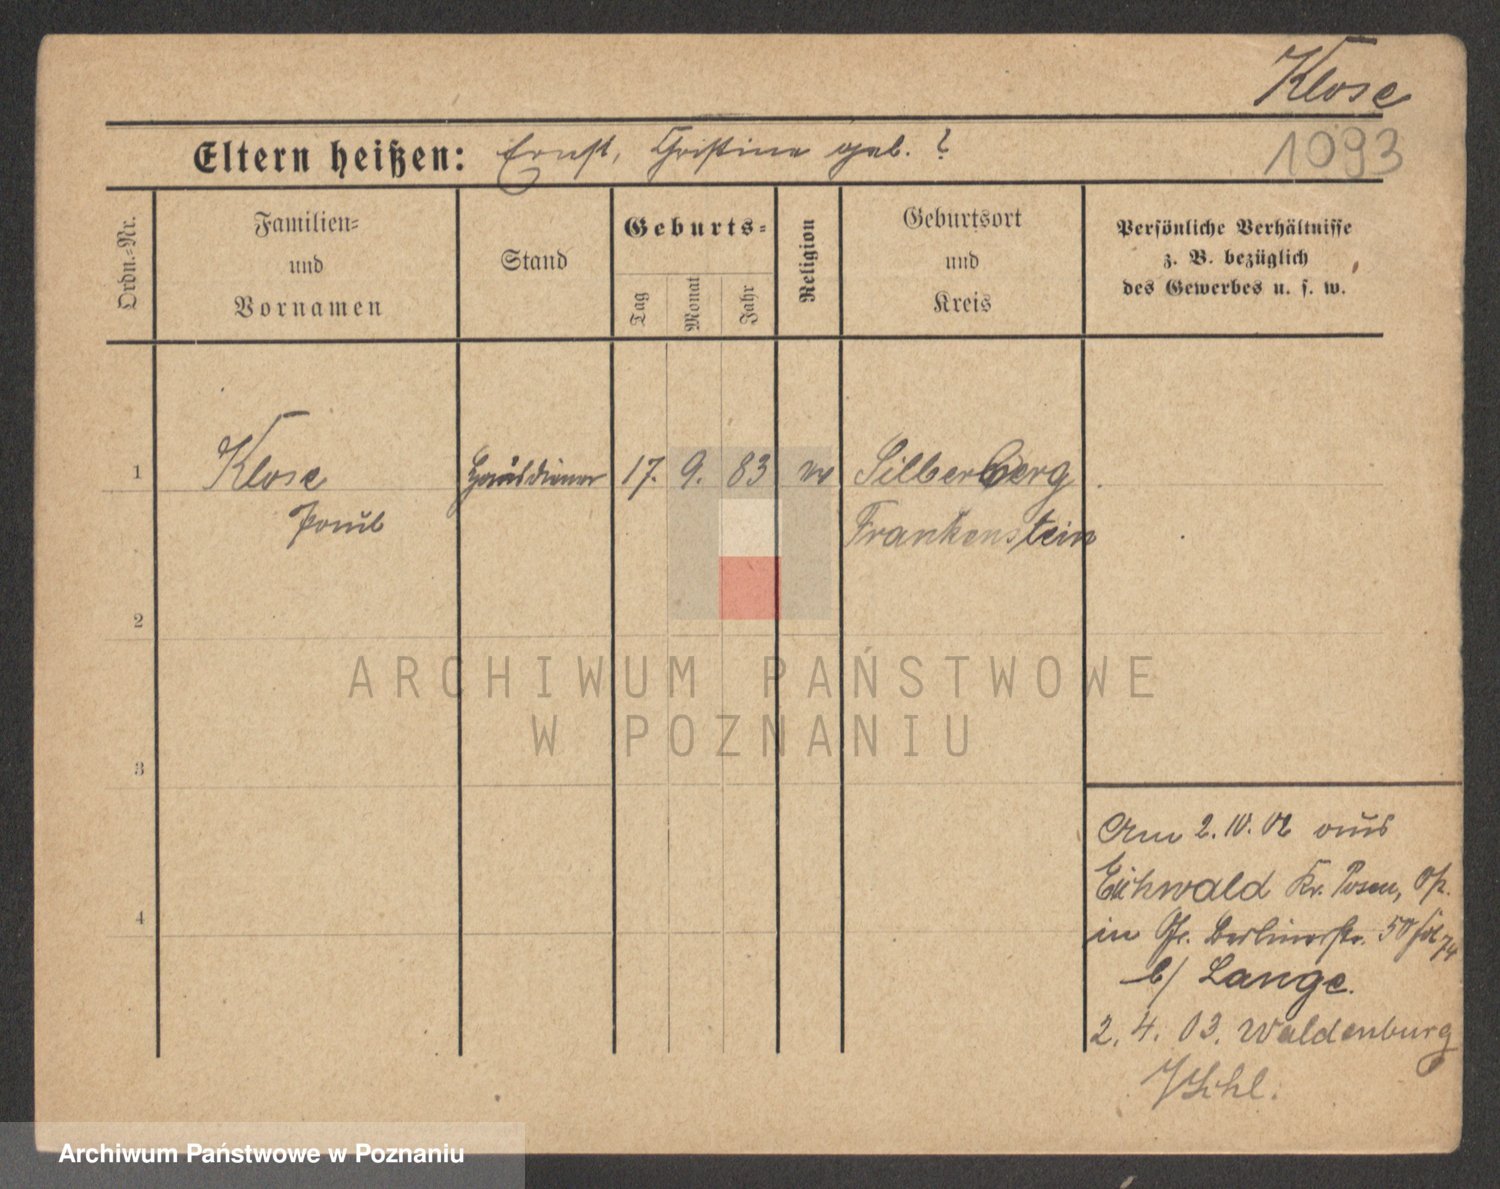 Klose
Eltern heißen: Ernst, Christine geb. ?
1093
Ordn.-Nr.
Familien-
und
Vornamen
Stand
Geburts-
Tag
Monat
Jahr
Religion
Geburtsort
und
Kreis
Persönliche Verhältnisse
z. B. bezüglich
des Gewerbes u. s. w.
1 Klose Hausdiener 17. 9. 83 Silberberg
Paul Frankenstein
2
3
4
ARCHIWUM PAŃSTWOWE
W POZNANIU
Am 2. IV. 02 aus
Eichwald Kr. Posen,
in Berlinerstr. 50
b/ Lange.
2. 4. 03. Waldenburg
Archiwum Państwowe w Poznaniu